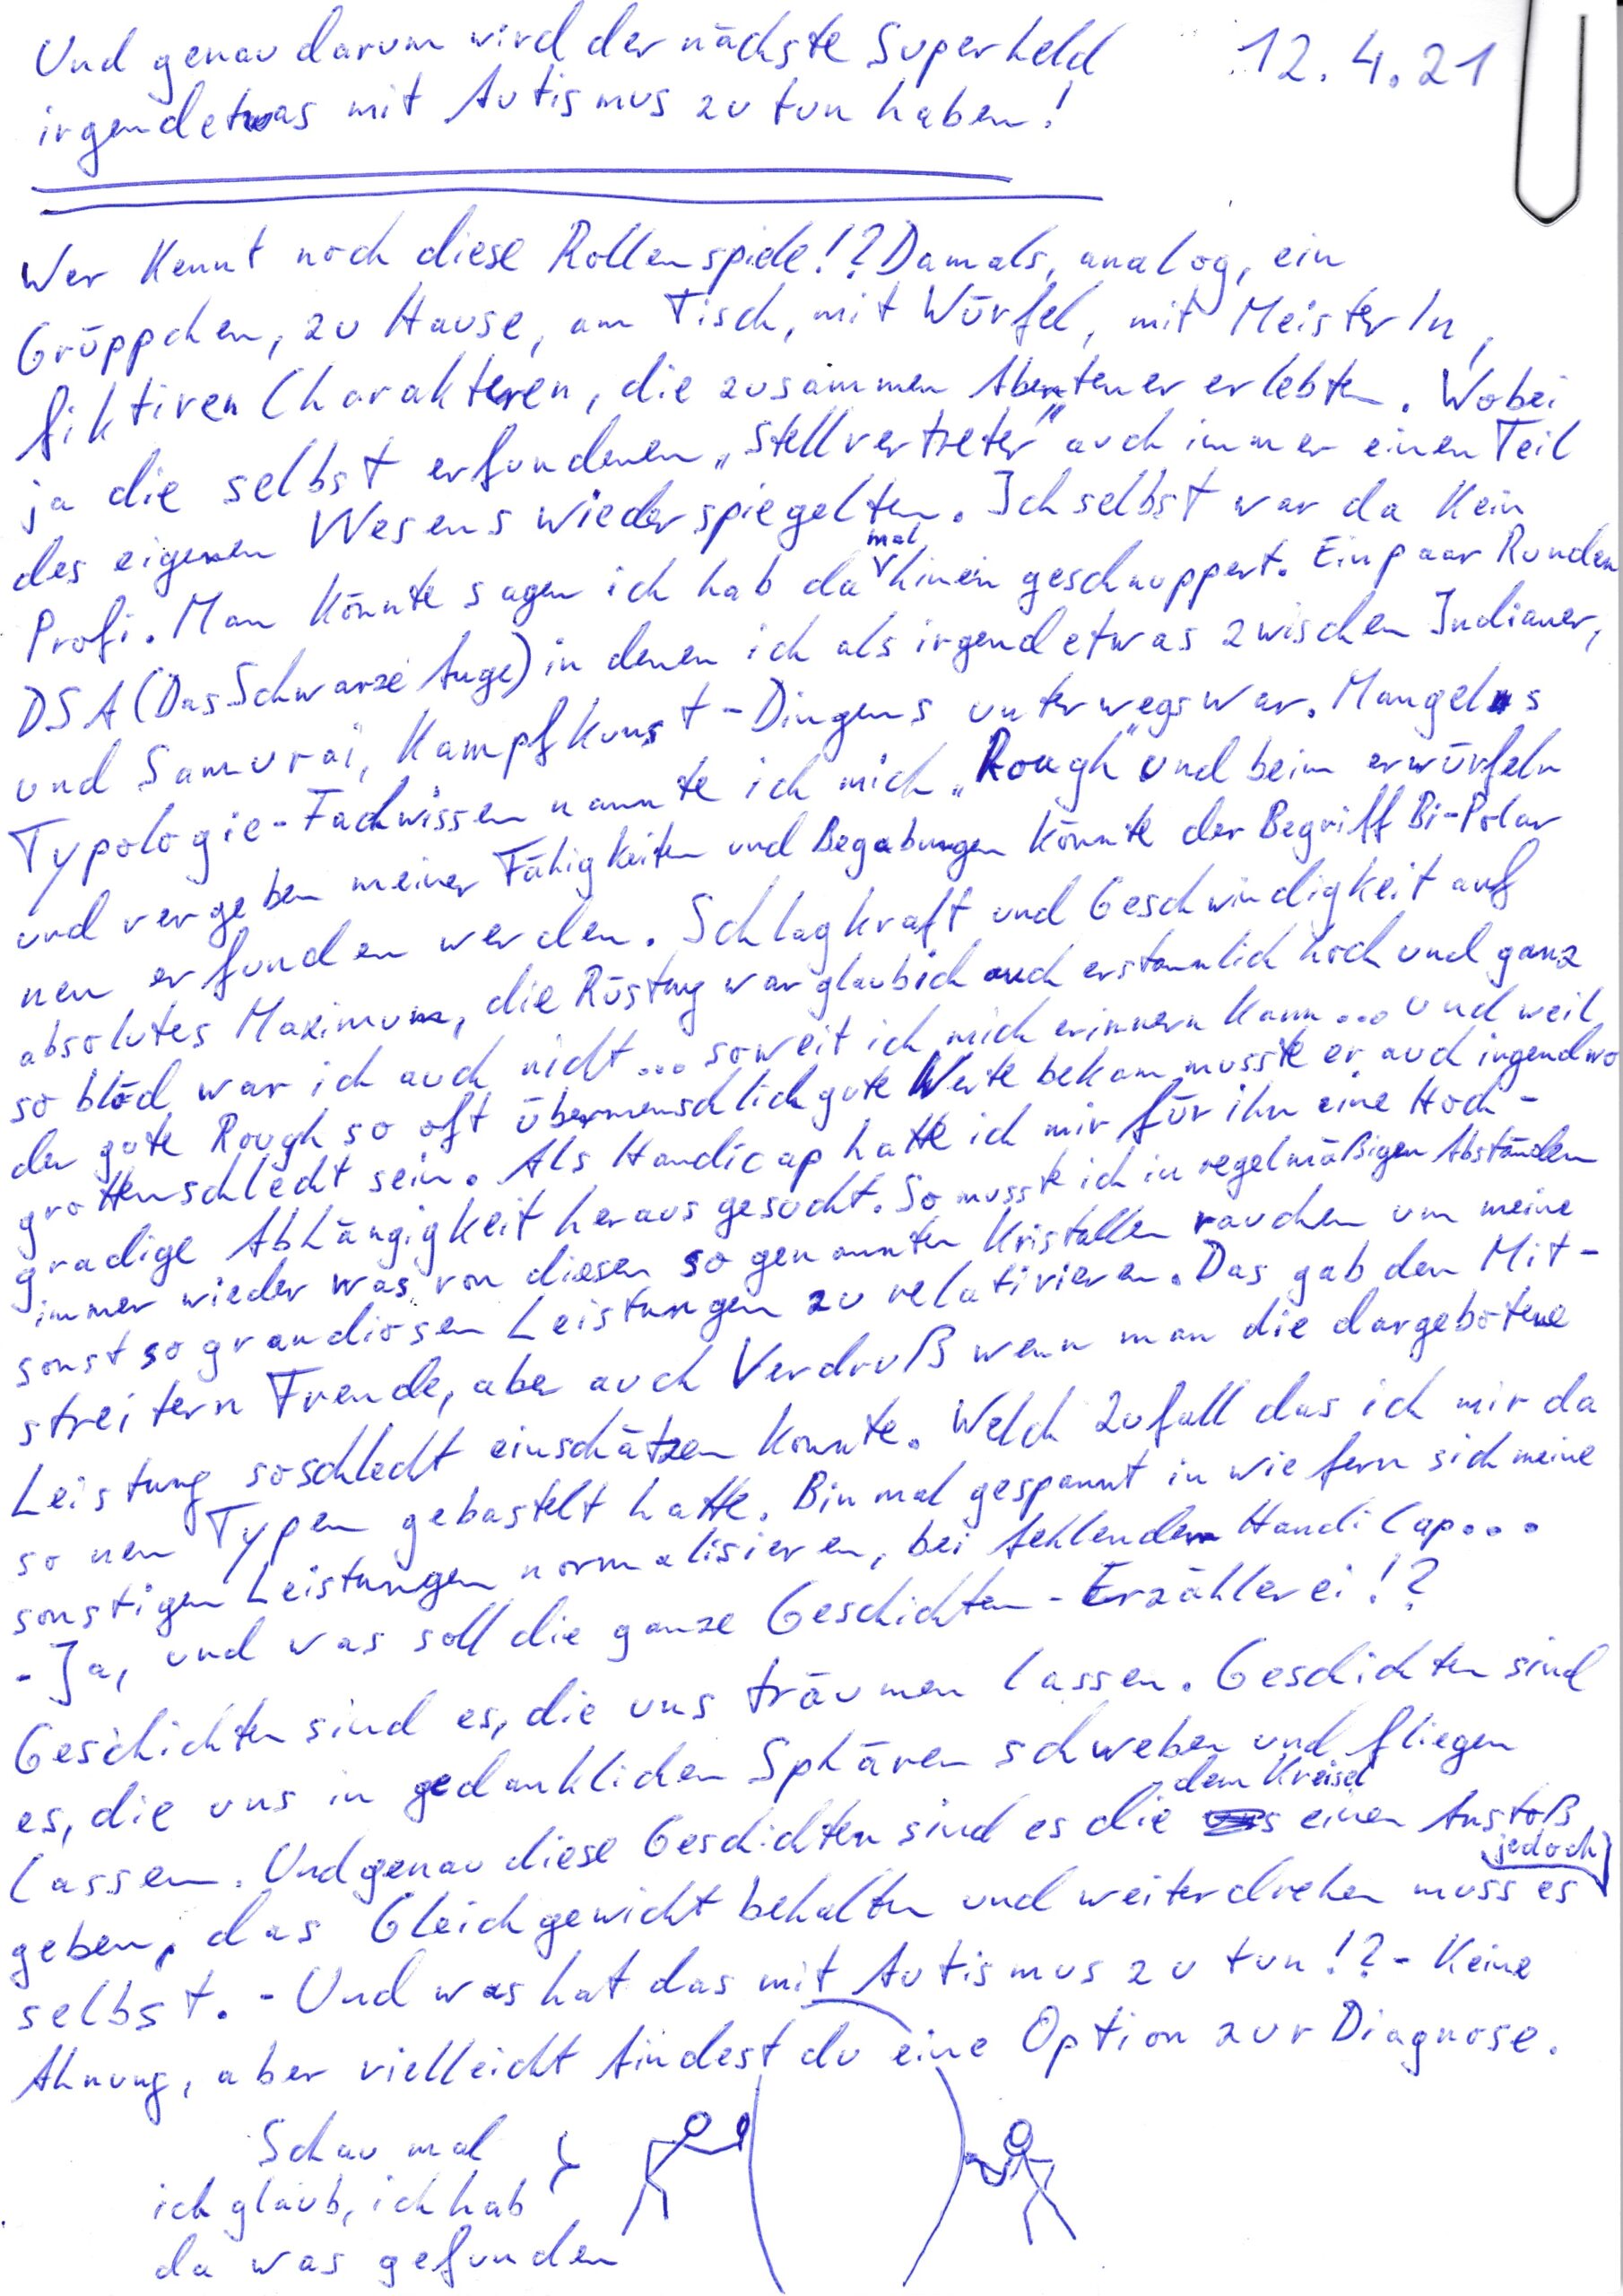 Und genau darum wird der nächste Superheld 12.4.21
irgendetwas mit Autismus zu tun haben!
Wer kennt noch diese Rollenspiele!? Damals, analog, ein
Grüppchen, zu Hause, am Tisch, mit Würfel, mit MeisterIn,
fiktiven Charakteren, die zusammen Abenteuer erlebten. Wobei
ja die selbst erfundenen „Stellvertreter" auch immer einen Teil
des eigenen Wesens wiederspiegelten. Ich selbst war da kein
Profi. Man könnte sagen ich hab da mal hinein geschnuppert. Ein paar Runden
DSA (Das Schwarze Auge) in denen ich als irgendetwas zwischen Indianer,
und Samurai, Kampfkunst-Dingens unterwegs war. Mangels
Typologie-Fachwissen nannte ich mich „Rough" und beim erwürfeln
und vergeben meiner Fähigkeiten und Begabungen könnte der Begriff Bi-Polar
neu erfunden werden. Schlagkraft und Geschwindigkeit auf
absolutes Maximum, die Rüstung war glaub ich auch erstaunlich hoch und ganz
so blöd war ich auch nicht... soweit ich mich erinnern kann... und weil
der gute Rough so oft übermenschlich gute Werte bekam musste er auch irgendwo
grottenschlecht sein. Als Handicap hatte ich mir für ihn eine Hoch-
gradige Abhängigkeit heraus gesucht. So musste ich in regelmäßigen Abständen
immer wieder was von diesen so genannten Kristallen rauchen um meine
sonst so grandiosen Leistungen zu relativieren. Das gab den Mit-
streitern Freude, aber auch Verdruß wenn man die dargebotene
Leistung so schlecht einschätzen konnte. Welch Zufall das ich mir da
so nen Typen gebastelt hatte. Bin mal gespannt in wie fern sich meine
sonstigen Leistungen normalisieren, bei fehlendem HandiCap...
- Ja, und was soll die ganze Geschichten-Erzählerei!?
Geschichten sind es, die uns träumen lassen. Geschichten sind
es, die uns in gedanklichen Sphären schweben und fliegen
lassen. Und genau diese Geschichten sind es die dem Kreisel einen Anstoß
geben, das Gleichgewicht behalten und weiterdrehen muss es jedoch
selbst. - Und was hat das mit Autismus zu tun!? - Keine
Ahnung, aber vielleicht findest du eine Option zur Diagnose.
Schau mal
ich glaub, ich hab
da was gefunden